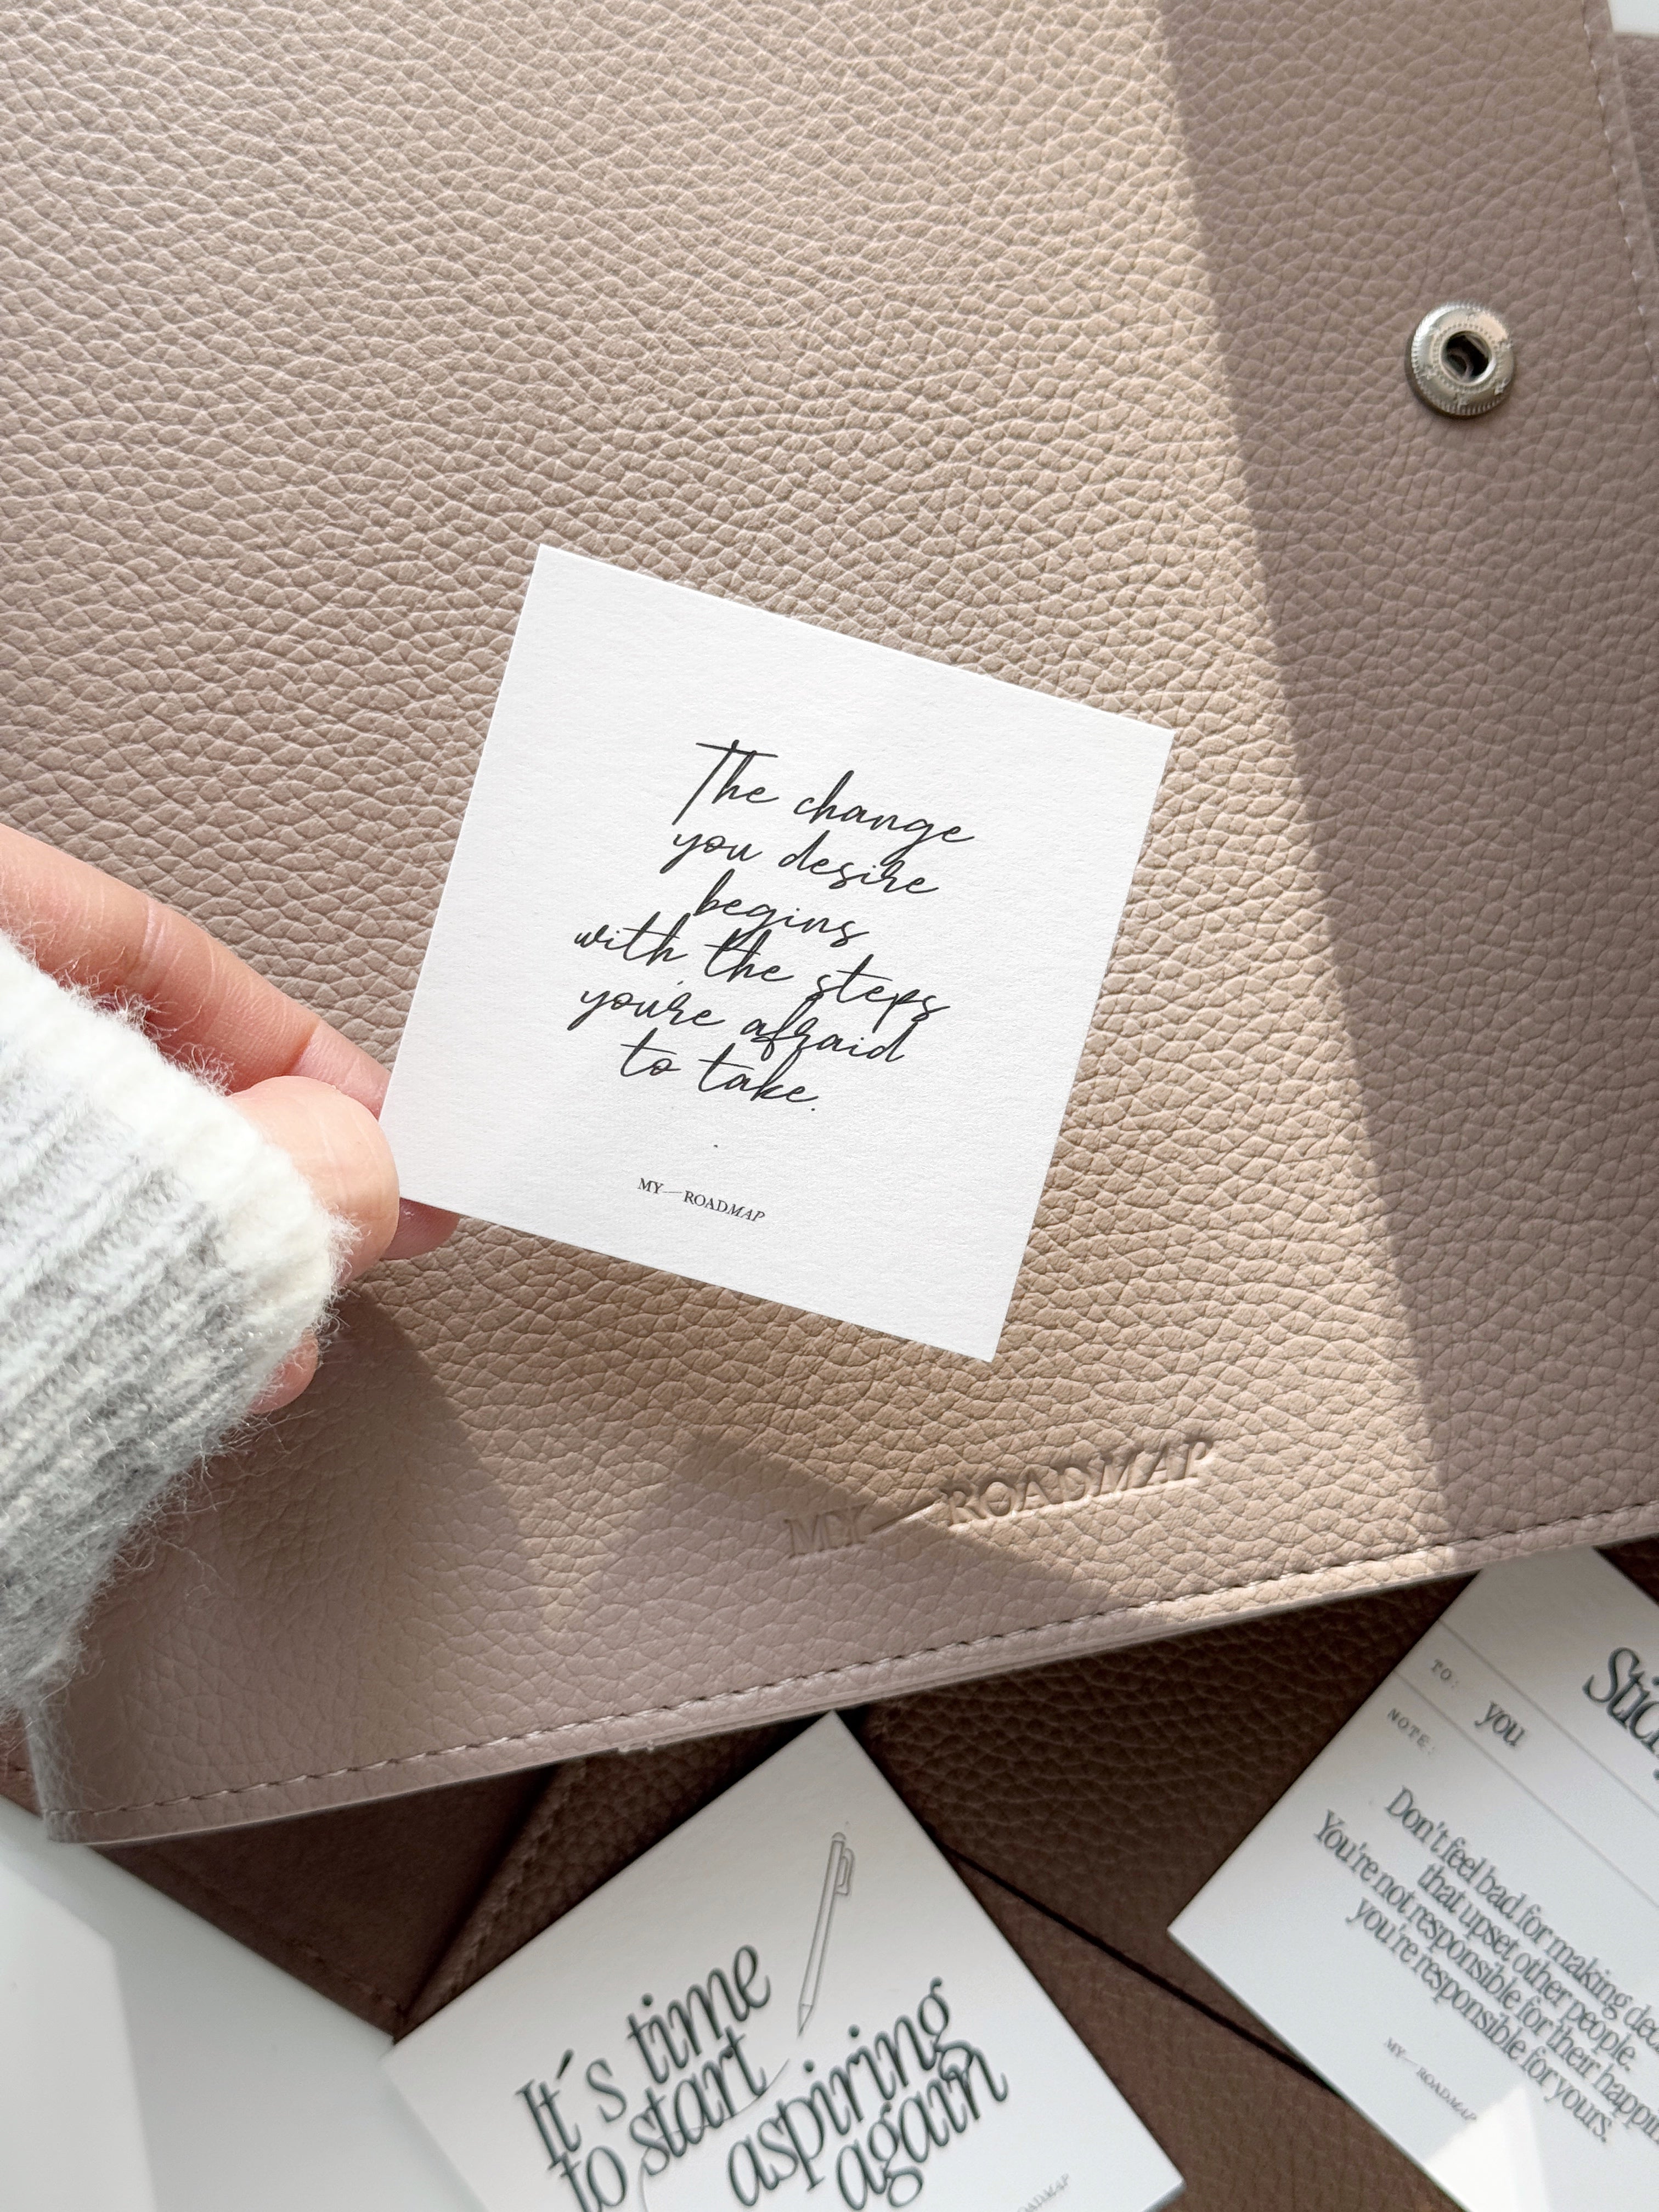 The change
you desire
begins
with the steps
you're afraid
to take.
MY—ROADMAP
MY—ROADMAP
It´s time
to start
aspiring
again
ROADMAP
TO:
you
NOTE:
Don't feel bad for making
that upset other people.
You're not responsible for their
you're responsible for yours.
MY—ROADMAP